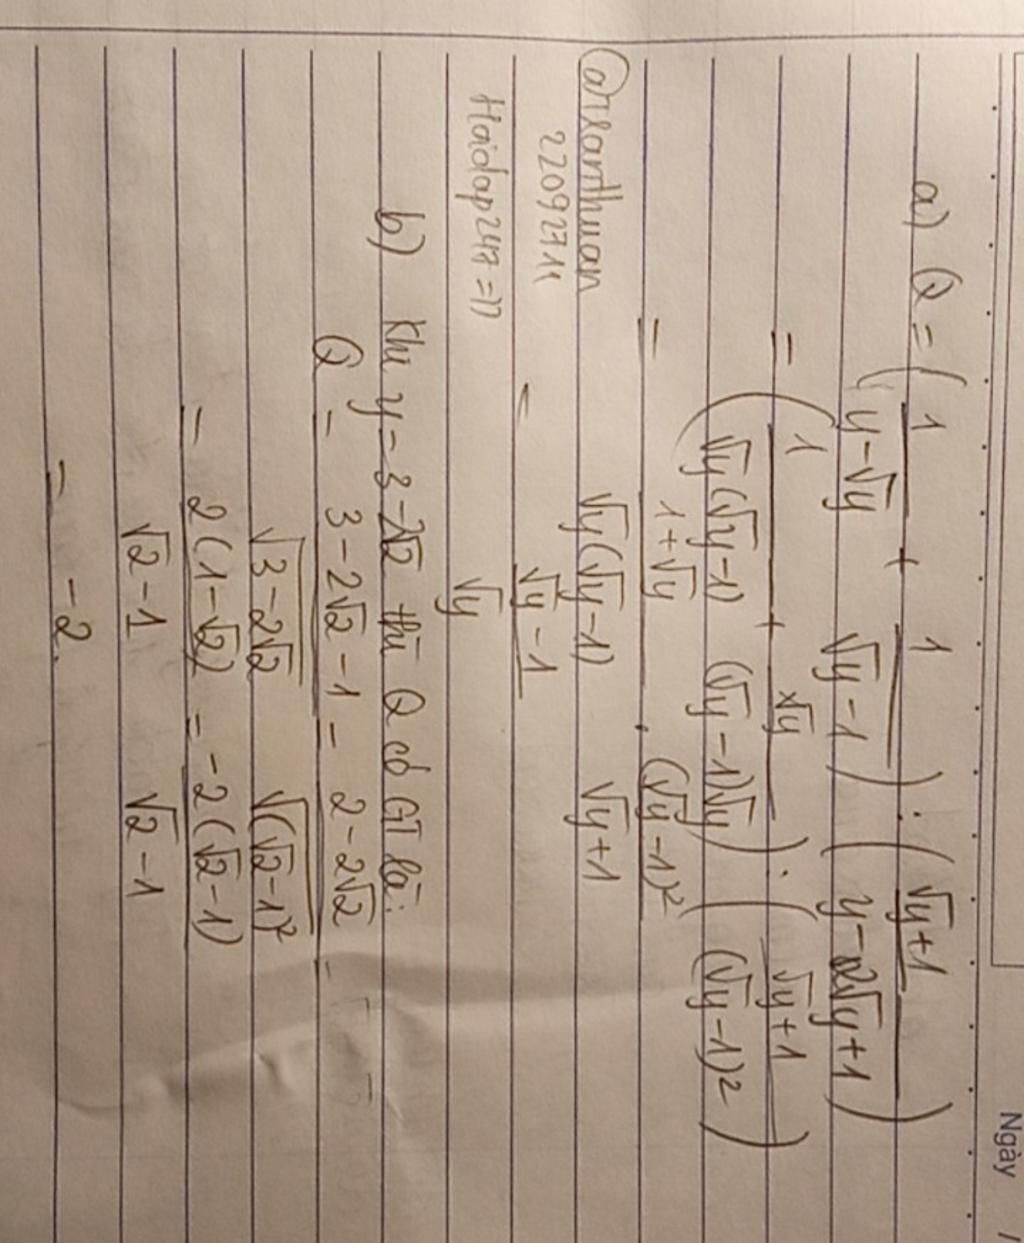 Ngày /
a) Q = ( 1/(y-√y) + 1/(√y-1) ) : ( (√y+1)/(y-2√y+1) )
= ( 1/(√y(√y-1)) + √y/((√y-1)√y) ) : ( (√y+1)/(√y-1)² )
= (1+√y)/(√y(√y-1)) . (√y-1)²/(√y+1)
= (√y-1)/√y
@arixanthuan
22092711
Hoidap247=))
b) Khi y=3-2√2 thì Q có GT là:
Q = (3-2√2-1)/√(3-2√2) = (2-2√2)/√((√2-1)²) =
= 2(1-√2)/(√2-1) = -2(√2-1)/(√2-1)
= -2.